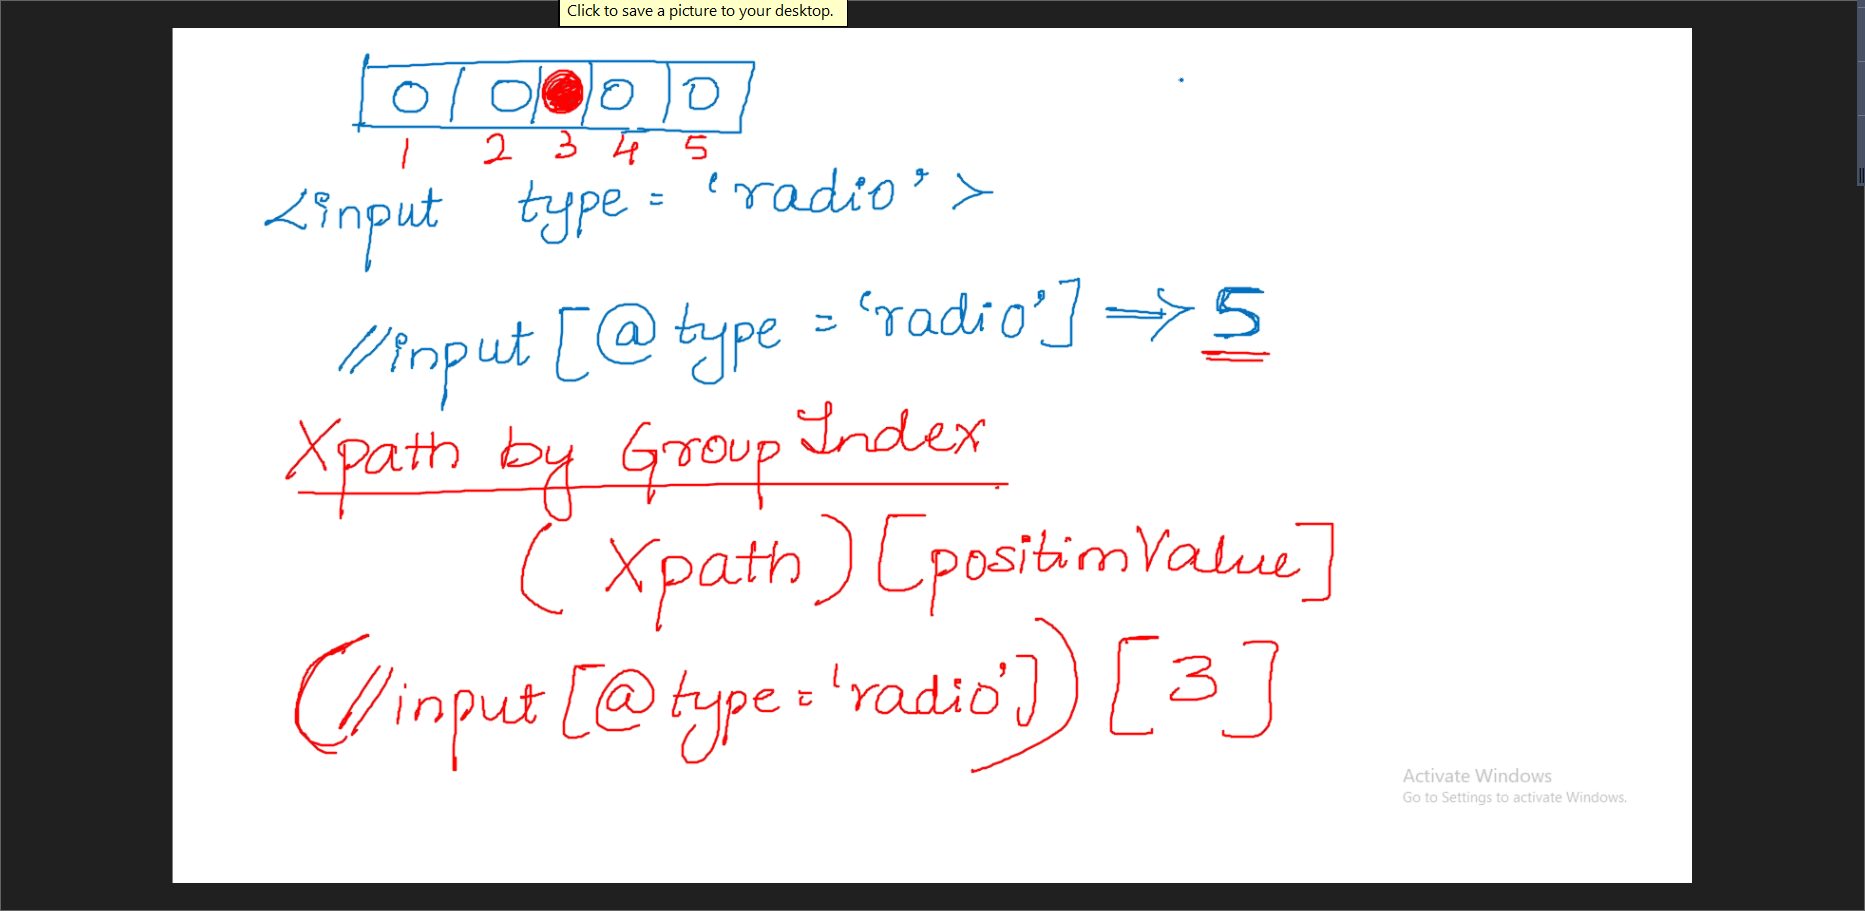 Click to save a picture to your desktop.
1 2 3 4 5
<input type = 'radio' >
//input [@type = 'radio'] => 5
Xpath by Group Index
( Xpath ) [positionValue]
(//input [@type = 'radio']) [3]
Activate Windows
Go to Settings to activate Windows.